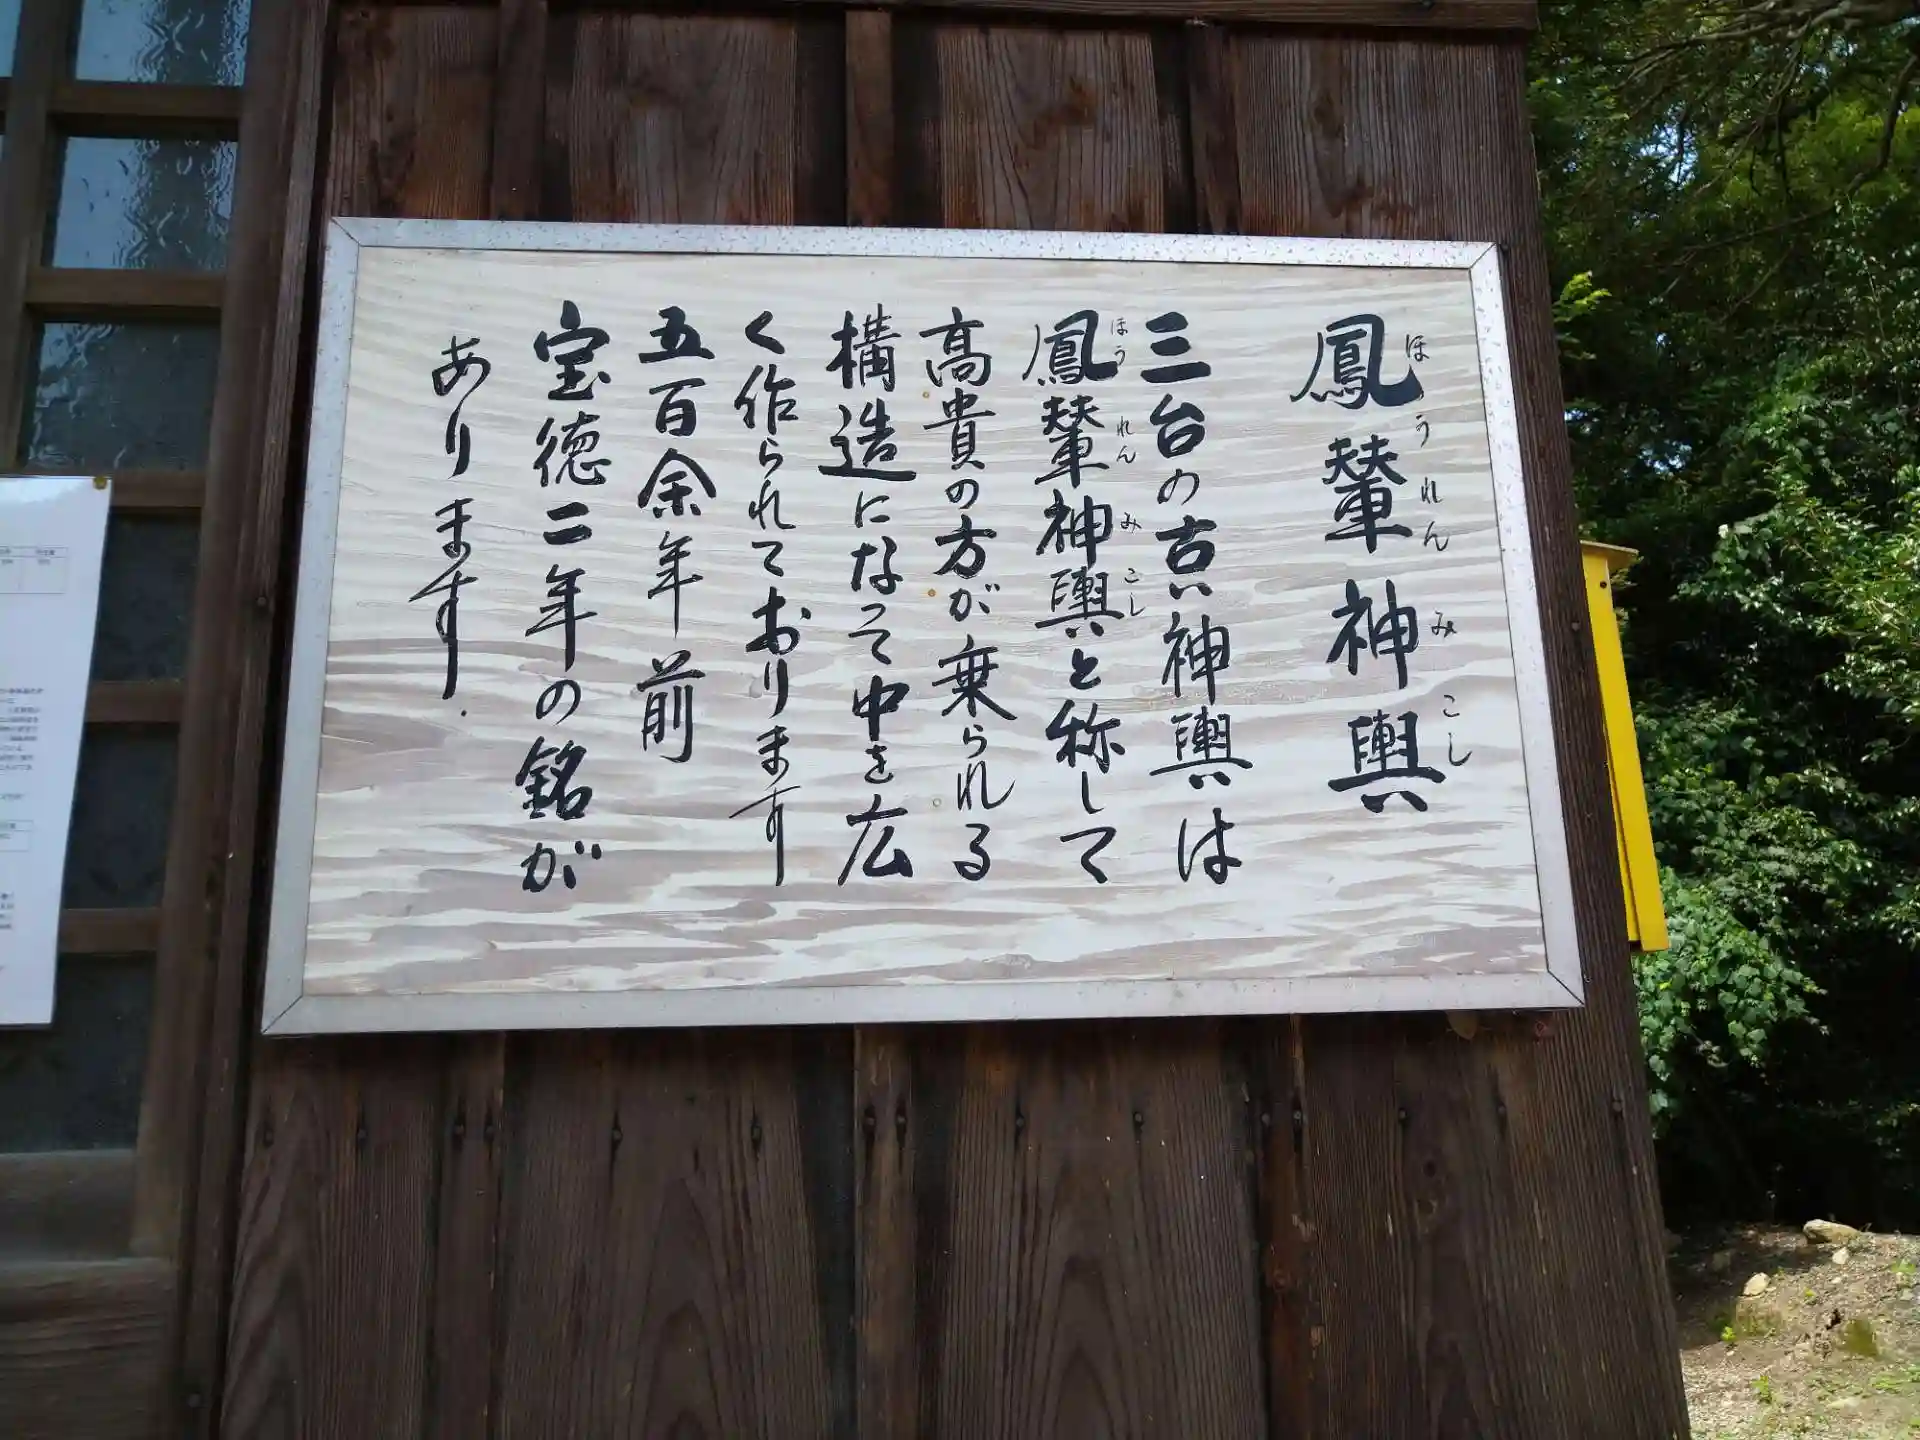 鳳輦神輿
ほうれんみこし
三台の古い神輿は
鳳輦神輿と称して
ほうれんみこし
高貴の方が乗られる
構造になって中を広
く作られております
五百余年前
宝徳二年の銘が
あります